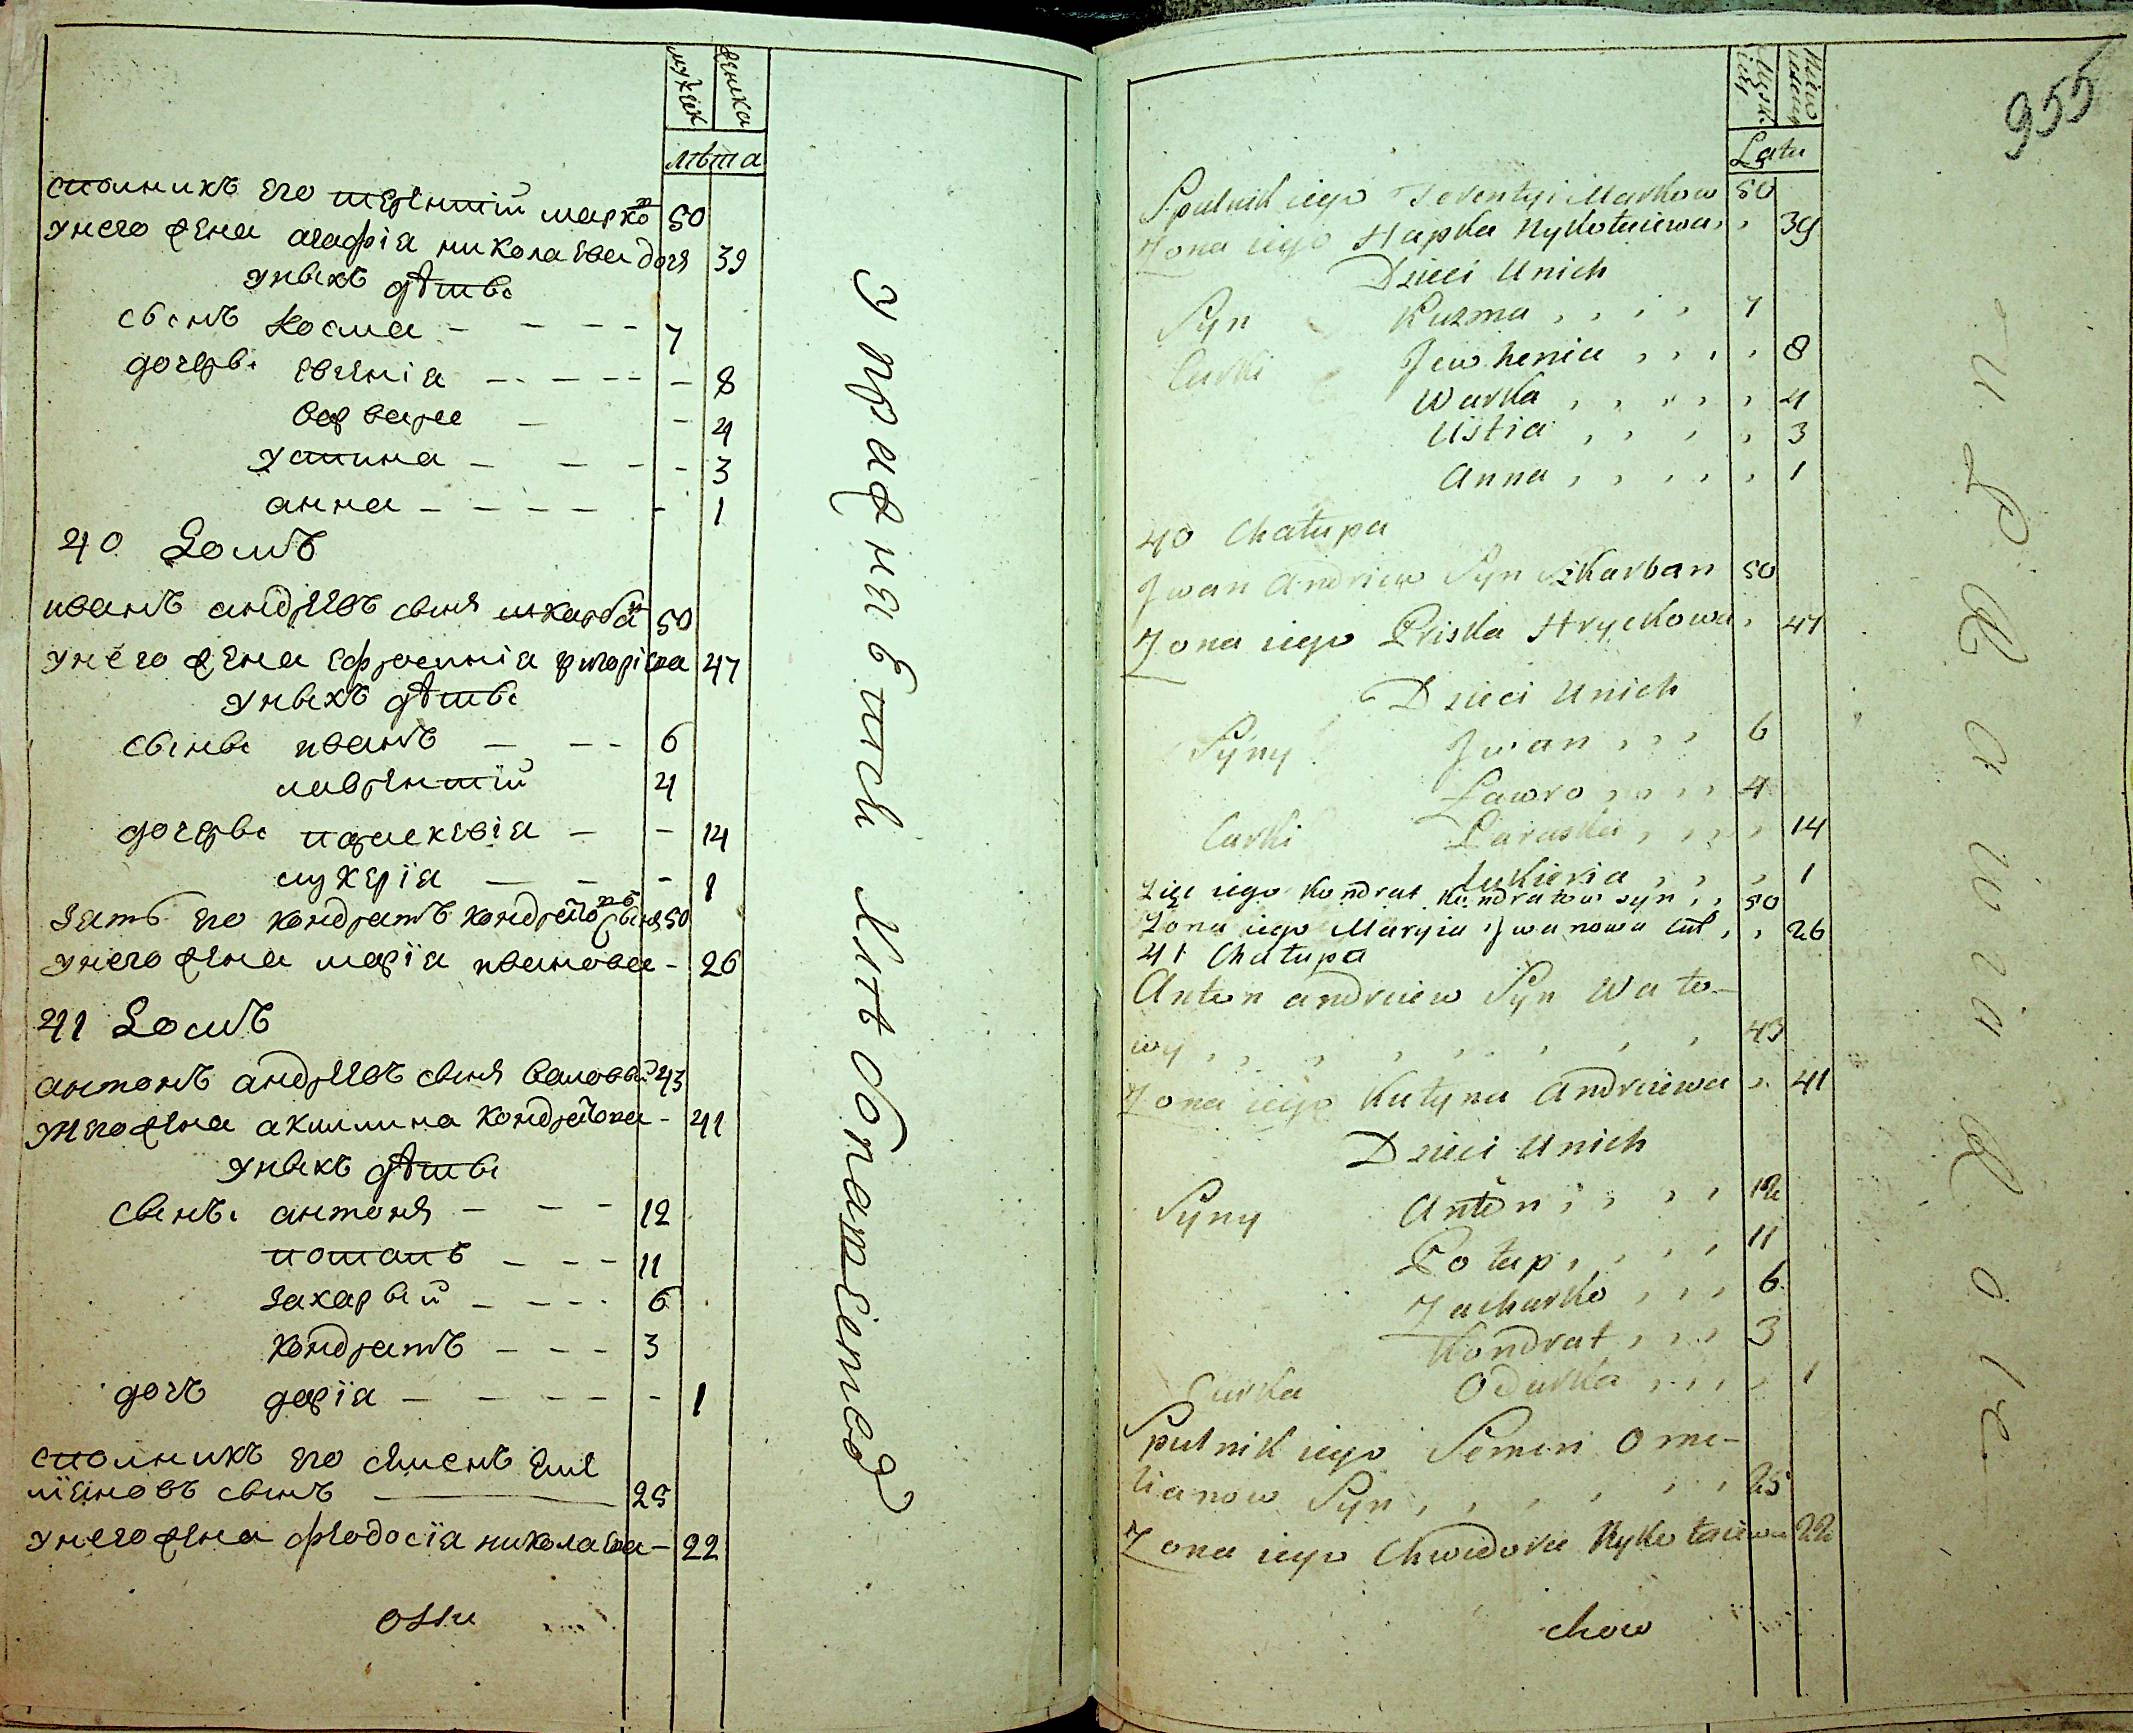 мужск женска
лѣта
спольникъ его терентій марковъ 50
у него жена агафіа николаева дочя 39
у ныхъ дѣты
сынъ косма - - - - 7
дочеры евгеніа - - - - 8
варвара - - 4
устина - - - - 3
анна - - - - - 1
40 Домъ
иванъ андрѣевъ сынъ шкарбанъ 50
у него жена ефросиніа григоріева 47
у ныхъ дѣты
сыны иванъ - - - 6
лаврентій 4
дочеры параскевіа - - 14
лукеріа - - - 1
зять его кондратъ кондратовъ сынъ 50
у него жена маріа иванова - 26
41 Домъ
антонъ андрѣевъ сынъ валовый 43
у него жена акилина кондратова - 41
у ныхъ дѣты
сыны антонъ - - - 12
потапъ - - - 11
захарый - - - - 6
кондратъ - - - 3
дочъ даріа - - - - - 1
спольникъ его семенъ еме
ліановъ сынъ 25
у него жена феодосіа николаева - 22
Latu
Spulnik iego Terentyi Markow 50
Zona iego Hapka Nykołaiewa 39
Dzieci Unich
Syn Kuzma 7
Curki Jewhenia 8
Warka 4
Ustia 3
Anna 1
40 Chałupa
Jwan Andriew Syn Szkarban 50
Zona iego Priska Hryckowa 47
Dzieci Unich
Syny Jwan 6
Ławro 4
Curki Paraska 14
Łukieria 1
Zięć iego Kondrat Kondratow syn 50
Zona iego Maryia Jwanowa cur 26
41 Chałupa
Anton Andriiew Syn Wało-
wy 43
Zona iego Kułyna Andriiewa 41
Dzieci Unich
Syny Anton 12
Potap 11
Zacharko 6
Kondrat 3
Curka Odarka 1
Spulnik iego Semen Ome-
lianow Syn 25
Zona iego Chwedora Nykołaiewa 22
chow
955